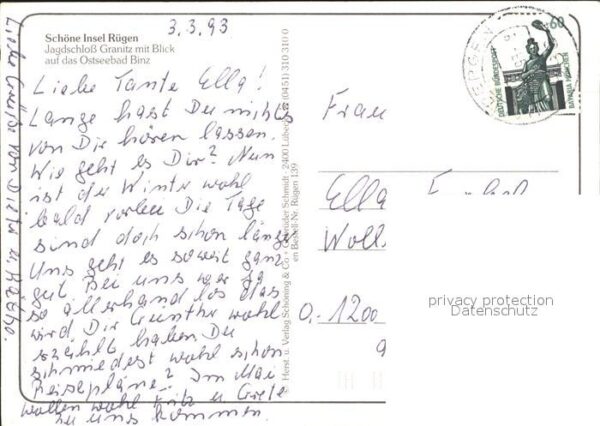 3.3.93
Schöne Insel Rügen
Jagdschloß Granitz mit Blick
auf das Ostseebad Binz
Liebe Tante Ella!
Lange hast Du nichts
von Dir hören lassen.
Wie geht es Dir? Nun
ist der Winter wohl
bald vorbei Die Tage
sind doch schon länger
Uns geht es soweit ganz
gut Bei uns war ja
so allerhand los das
wird Dir Günther wohl
erzählt haben. Du
schmiedest wohl schon
Reisepläne? Im Mai
wollen wohl Fritz u. Grete
zu uns kommen.
Liebe Grüße von Dieter u. Käthe.
Herst. u. Verlag Schöning & Co + Gebrüder Schmidt · 2400 Lübeck (0451) 310 310 0
Bestell-Nr. Rügen 139
BERGEN
60
DEUTSCHE BUNDESPOST
BAVARIA MÜNCHEN
Frau
Ella
Woll
O.-1200
privacy protection
Datenschutz